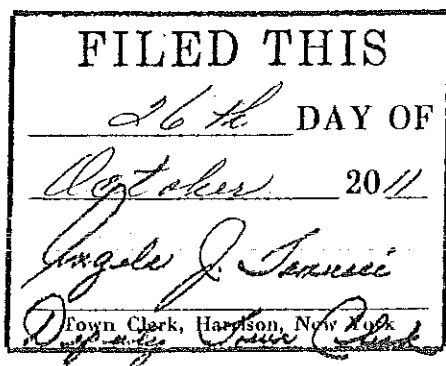 FILED THIS
26th DAY OF
October 2011
Angela J.
Town Clerk, Harrison, New York
Deputy Town Clerk